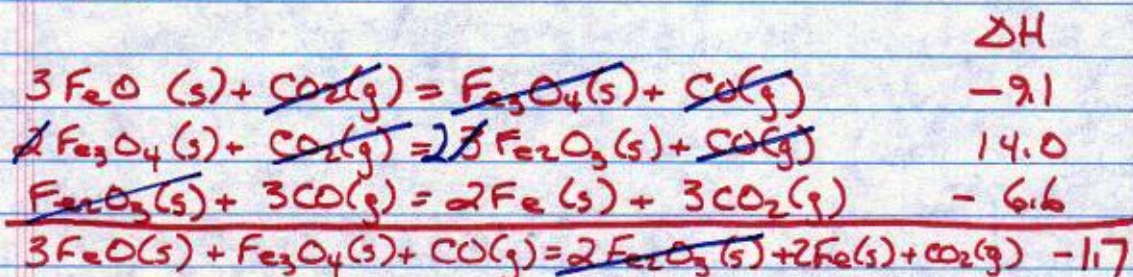 ΔH
3 FeO (s) + CO₂(g) = Fe₃O₄(s) + CO(g) -9.1
2 Fe₃O₄(s) + CO₂(g) = 2 3 Fe₂O₃(s) + CO(g) 14.0
Fe₂O₃(s) + 3CO(g) = 2Fe(s) + 3CO₂(g) - 6.6
3FeO(s) + Fe₃O₄(s) + CO(g) = 2 Fe₂O₃(s) + 2Fe(s) + CO₂(g) -1.7